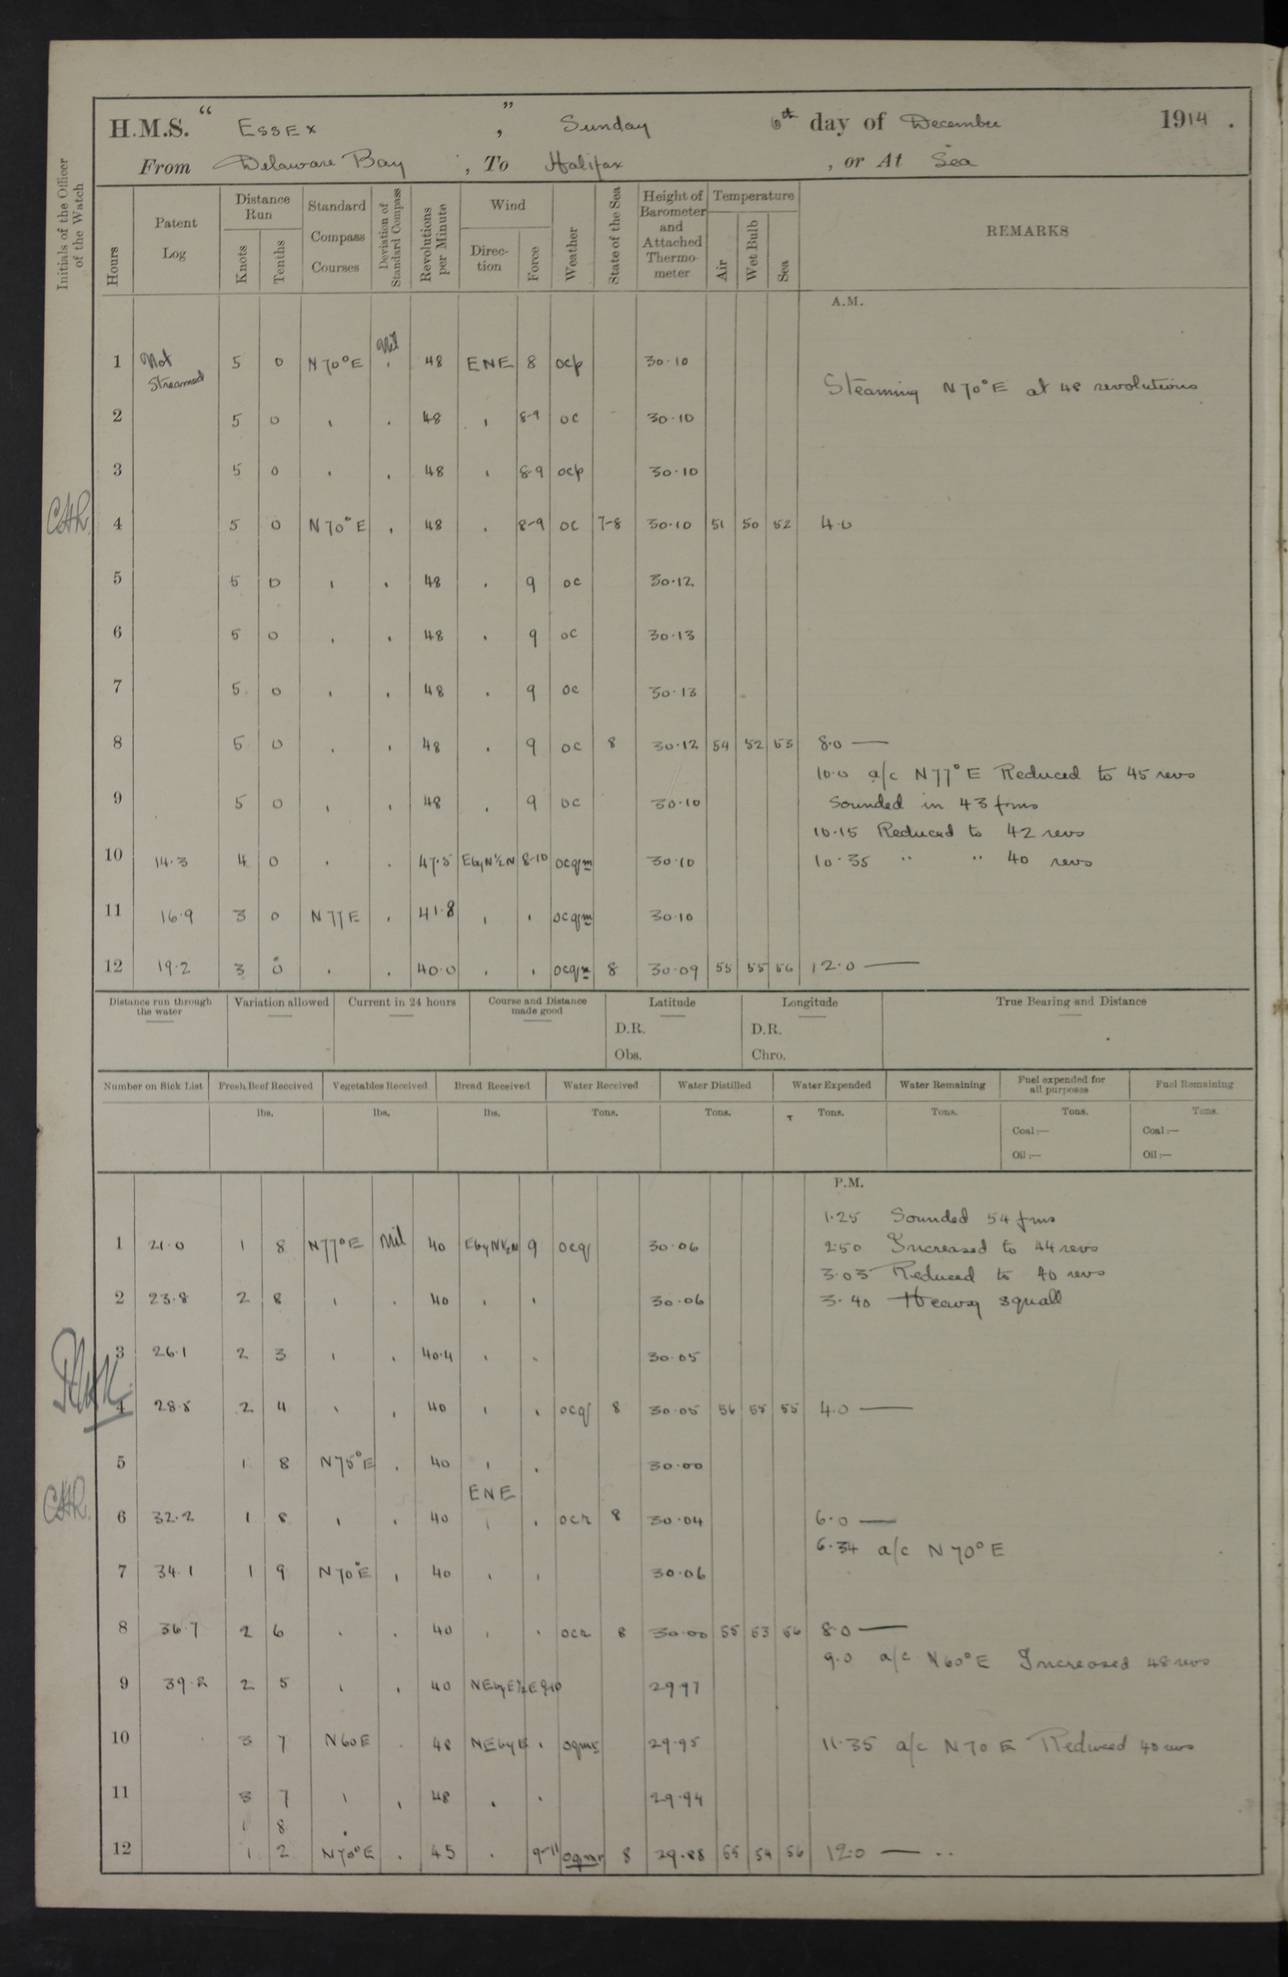 H.M.S. " ESSEX ", Sunday 6th day of December 1914.
From Delaware Bay, To Halifax, or At Sea
Initials of the Officer of the Watch
Hours Patent Log Distance Run Knots Tenths Standard Compass Courses Deviation of Standard Compass Revolutions per Minute Wind Direction Force Weather State of the Sea Height of Barometer and Attached Thermometer Temperature Air Wet Bulb Sea REMARKS
A.M.
1 Not Streamed 5 0 N 70° E Nil 48 ENE 8 ocp 30.10
Steaming N 70° E at 48 revolutions
2 5 0 , . 48 , 8-9 oc 30.10
3 5 0 . . 48 . 8-9 ocp 30.10
4 5 0 N 70° E , 48 . 8-9 oc 7-8 30.10 51 50 52 4.0
5 5 0 , . 48 . 9 oc 30.12
6 5 0 . . 48 . 9 oc 30.13
7 5 0 . . 48 . 9 oc 30.13
8 5 0 . . 48 . 9 oc 8 30.12 54 52 53 8.0 —
10.0 a/c N 77° E Reduced to 45 revs
9 5 0 , . 48 . 9 oc 30.10 Sounded in 43 fms
10.15 Reduced to 42 revs
10 14.3 4 0 . . 47.5 EbyN½N 8-10 ocqm 30.10 10.35 " " 40 revs
11 16.9 3 0 N 77 E . 41.8 , . ocqm 30.10
12 19.2 3 0 . . 40.0 . . ocqm 8 30.09 55 55 56 12.0 —
Distance run through the water Variation allowed Current in 24 hours Course and Distance made good Latitude Longitude True Bearing and Distance
D.R. D.R.
Obs. Chro.
Number on Sick List Fresh Beef Received Vegetables Received Bread Received Water Received Water Distilled Water Expended Water Remaining Fuel expended for all purposes Fuel Remaining
lbs. lbs. lbs. Tons. Tons. Tons. Tons. Tons. Tons.
Coal:— Coal:—
Oil:— Oil:—
P.M.
1.25 Sounded 54 fms
1 21.0 1 8 N 77° E Nil 40 EbyN½N 9 ocq 30.06 2.50 Increased to 44 revs
3.03 Reduced to 40 revs
2 23.8 2 8 , . 40 . . 30.06 3.40 Heavy squall
3 26.1 2 3 , . 40.4 . . 30.05
4 28.5 2 4 , , 40 , . ocq 8 30.05 56 55 55 4.0 —
5 1 8 N 75° E . 40 , . 30.00
ENE
6 32.2 1 8 , . 40 , . ocr 8 30.04 6.0 —
6.34 a/c N 70° E
7 34.1 1 9 N 70° E , 40 . , 30.06
8 36.7 2 6 . . 40 , . ocr 8 30.00 55 53 56 8.0 —
9.0 a/c N 60° E Increased 48 revs
9 39.2 2 5 , . 40 NEbyE½E 9-10 29.97
10 3 7 N 60 E . 48 NEbyE . 29.95 11.35 a/c N 70 E Reduced 40 revs
11 3 7 , , 48 . . 29.94
1 8
12 1 2 N 70° E . 45 . 9-11 oqmr 8 29.88 55 54 56 12.0 —